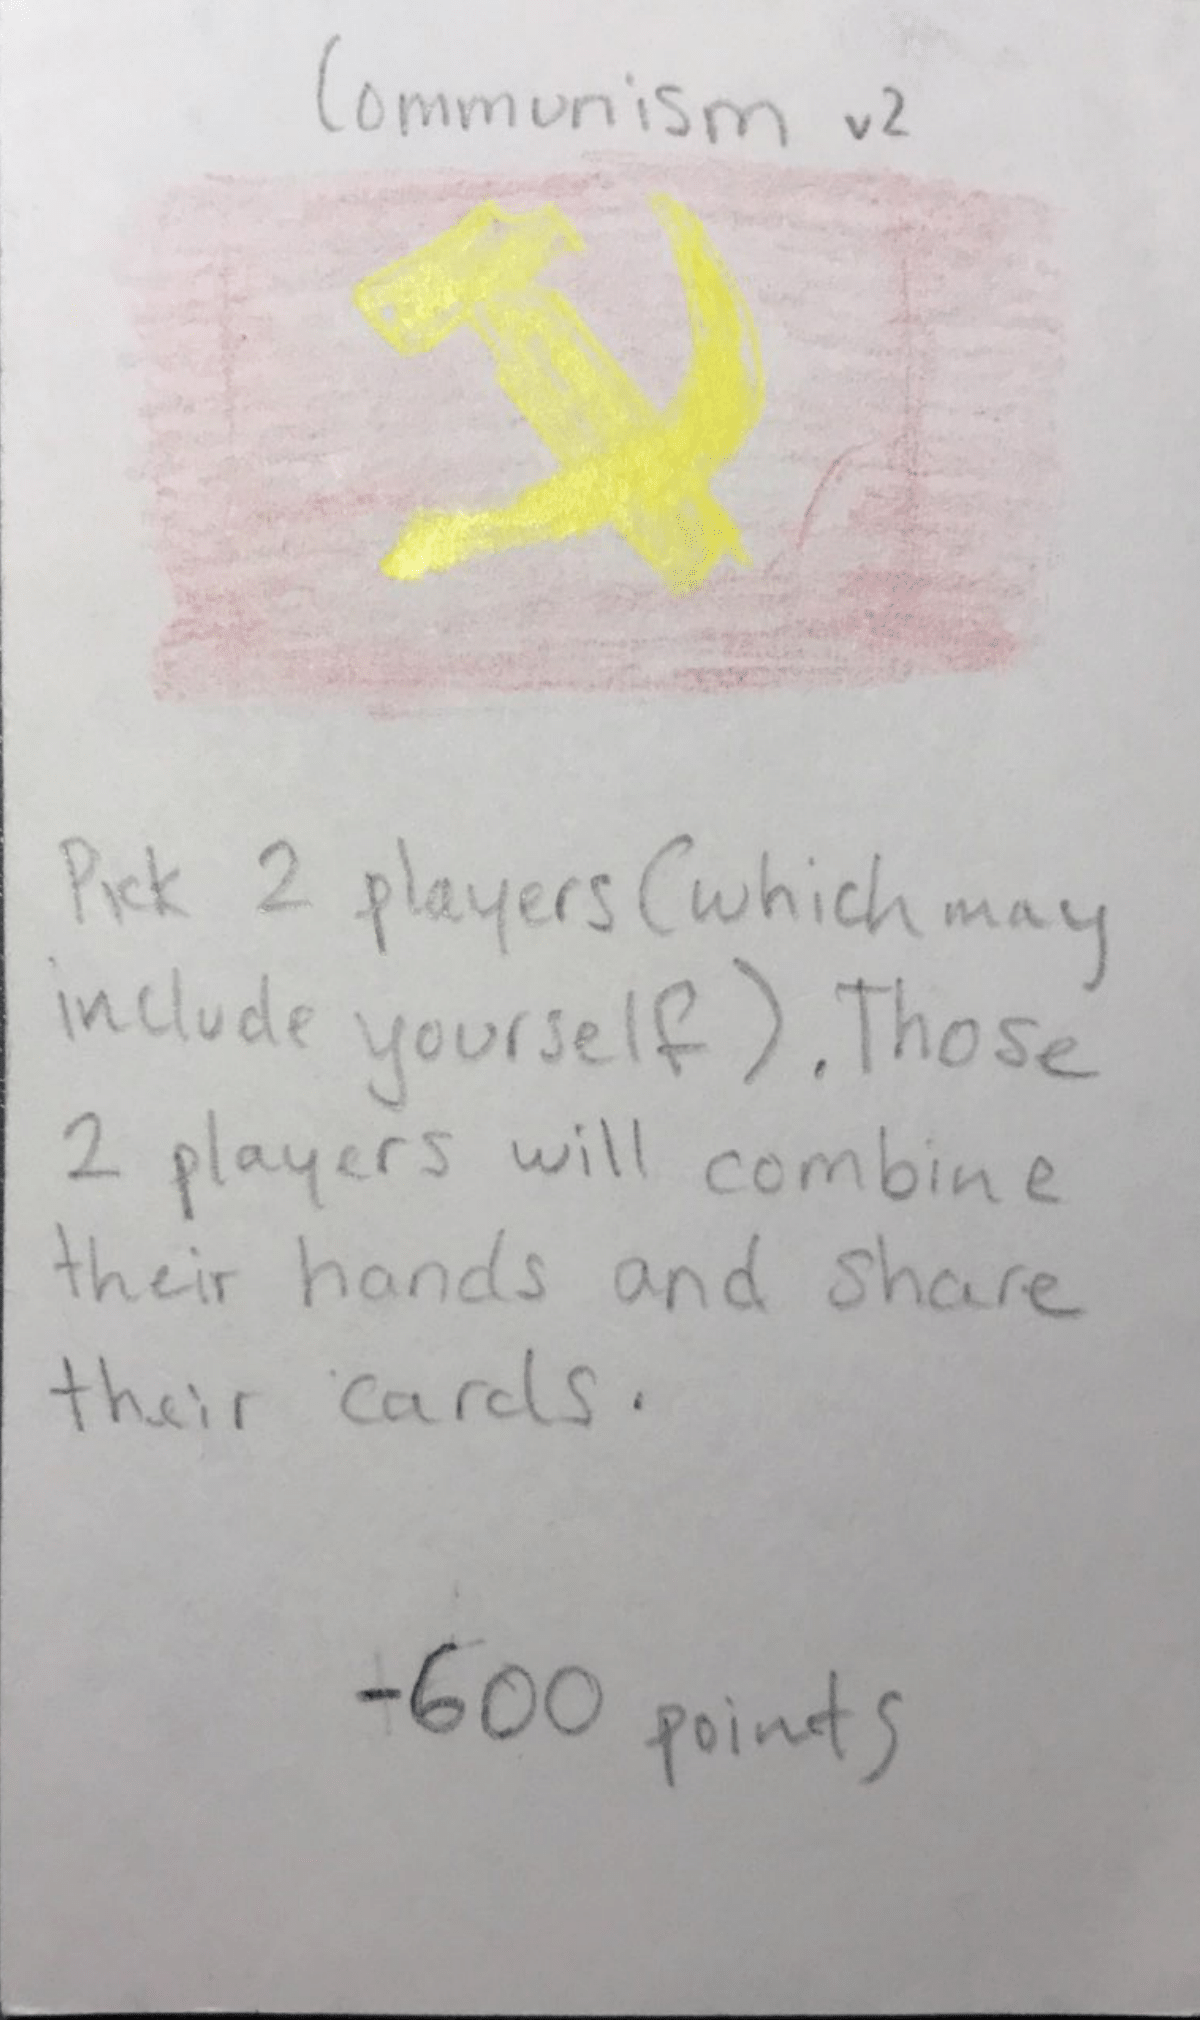 Communism v2
Pick 2 players (which may
include yourself). Those
2 players will combine
their hands and share
their cards.
-600 points